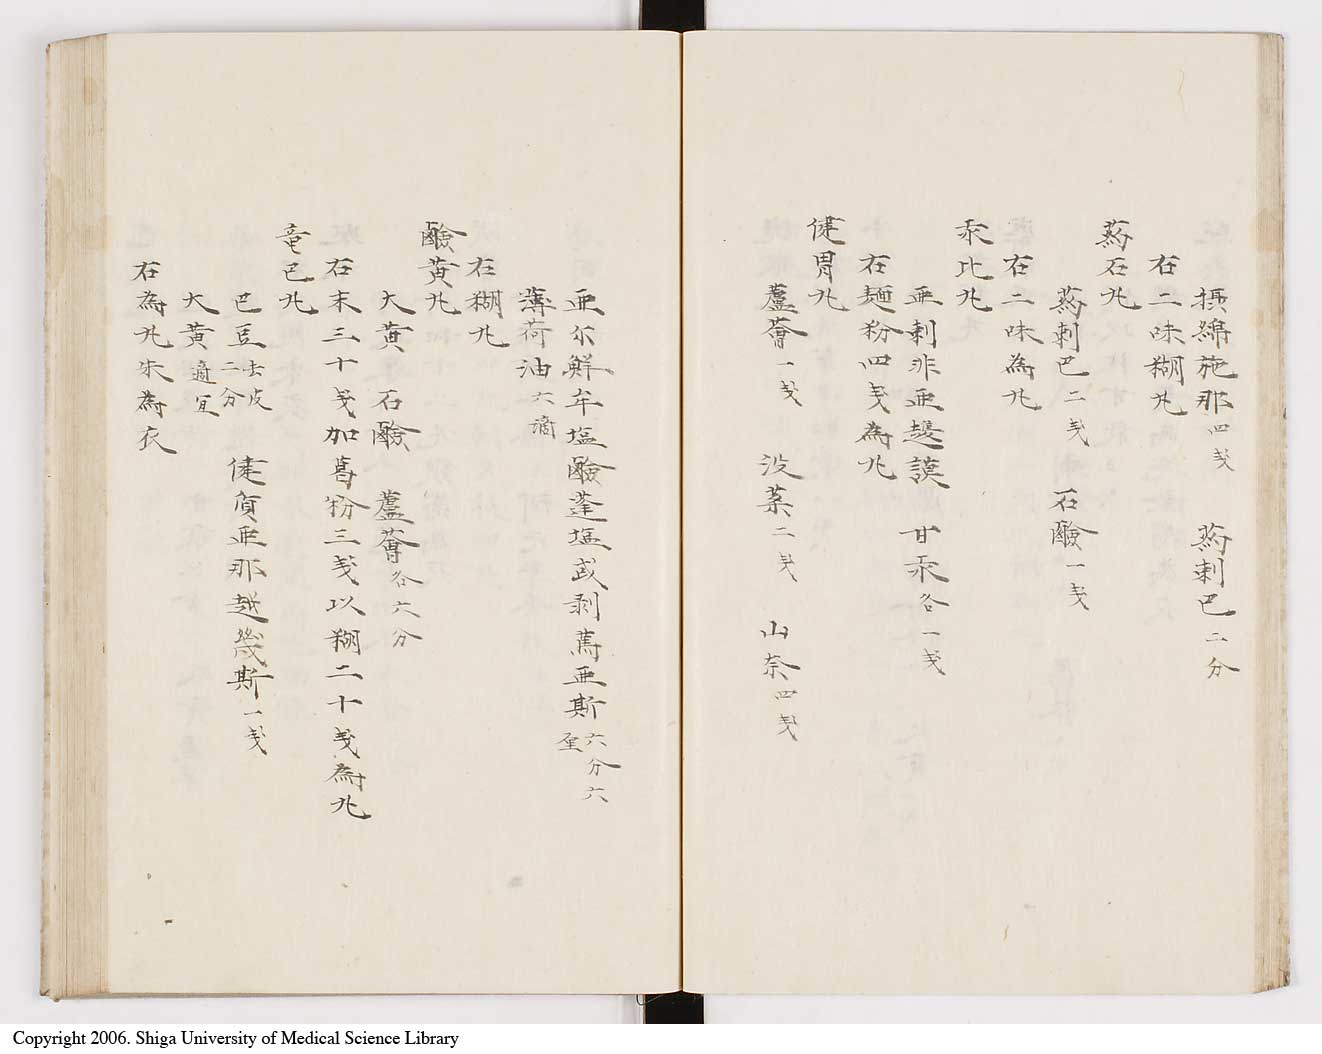 摂綿施那四戔 葯剌巴二分
右二味糊丸
葯石丸
葯剌巴二戔 石鹸一戔
右二味為丸
汞比丸
亜剌非亜護謨 甘汞各一戔
右麺粉四戔為丸
健胃丸
蘆薈一戔 没薬二戔 山奈四戔
亜尓鮮牟塩鹸蓬塩或剥篤亜斯六分六厘
薄荷油六滴
右糊丸
鹸黄丸
大黄 石鹸 蘆薈各六分
右末三十戔加葛粉三戔以糊二十戔為丸
竜巴丸
巴豆去皮二分 健質亜那越幾斯一戔
大黄適宜
右為丸朱為衣
Copyright 2006. Shiga University of Medical Science Library